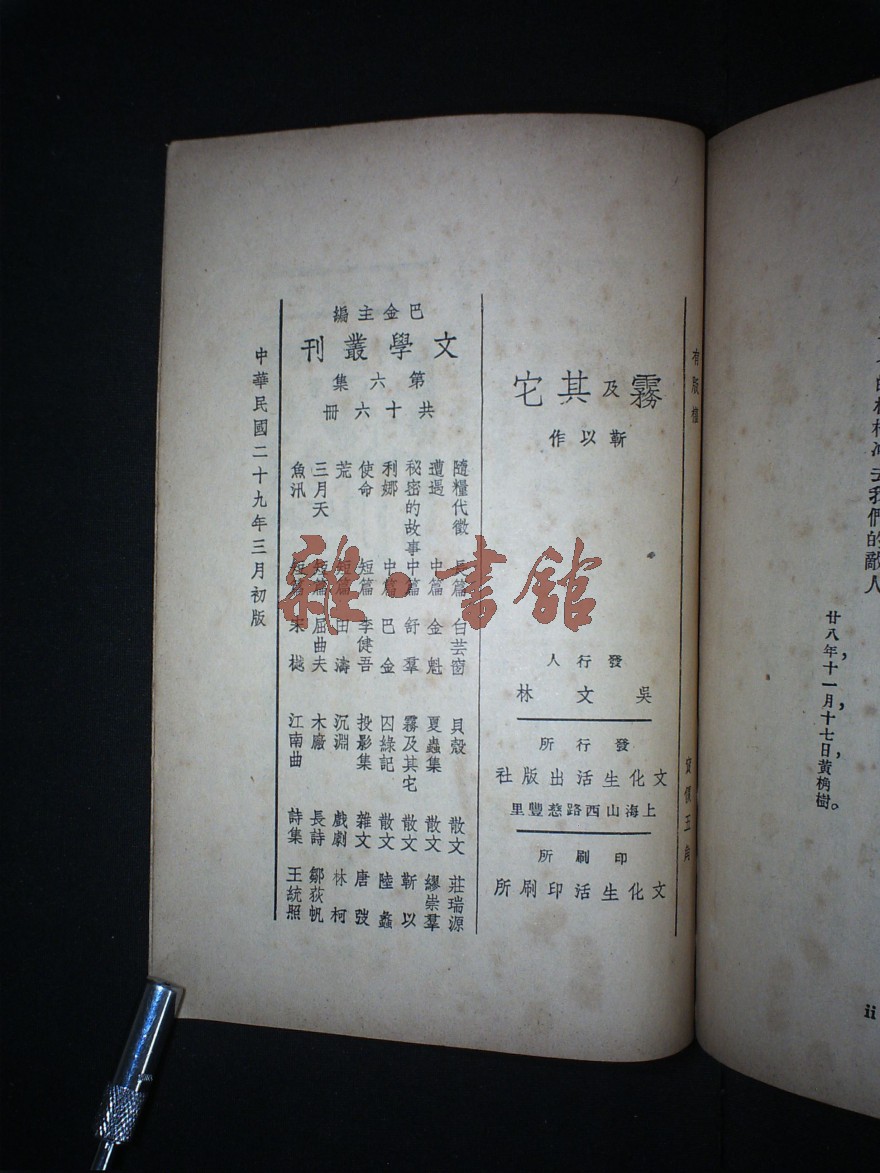 們的敵人
廿八年十一月十七日黃桷樹。
ii
有版權
霧及其它
靳以作
發行人
吳文林
發行所
文化生活出版社
上海山西路慈豐里
印刷所
文化生活印刷所
巴金主編
文學叢刊
第六集
共十六冊
隨糧代徵 長篇 白芸窗
遭遇 中篇 金魁
秘密的故事 中篇 舒羣
利娜 中篇 巴金
使命 短篇 李健吾
荒 短篇 田濤
三月天 短篇 屈曲夫
魚汛 短篇 宋樾
貝殼 散文 莊瑞源
夏蟲集 散文 繆崇羣
霧及其宅 散文 靳以
囚綠記 散文 陸蠡
投影集 雜文 唐弢
沉淵 戲劇 林柯
木廠 長詩 鄒荻帆
江南曲 詩集 王統照
中華民國二十九年三月初版
雜·書館